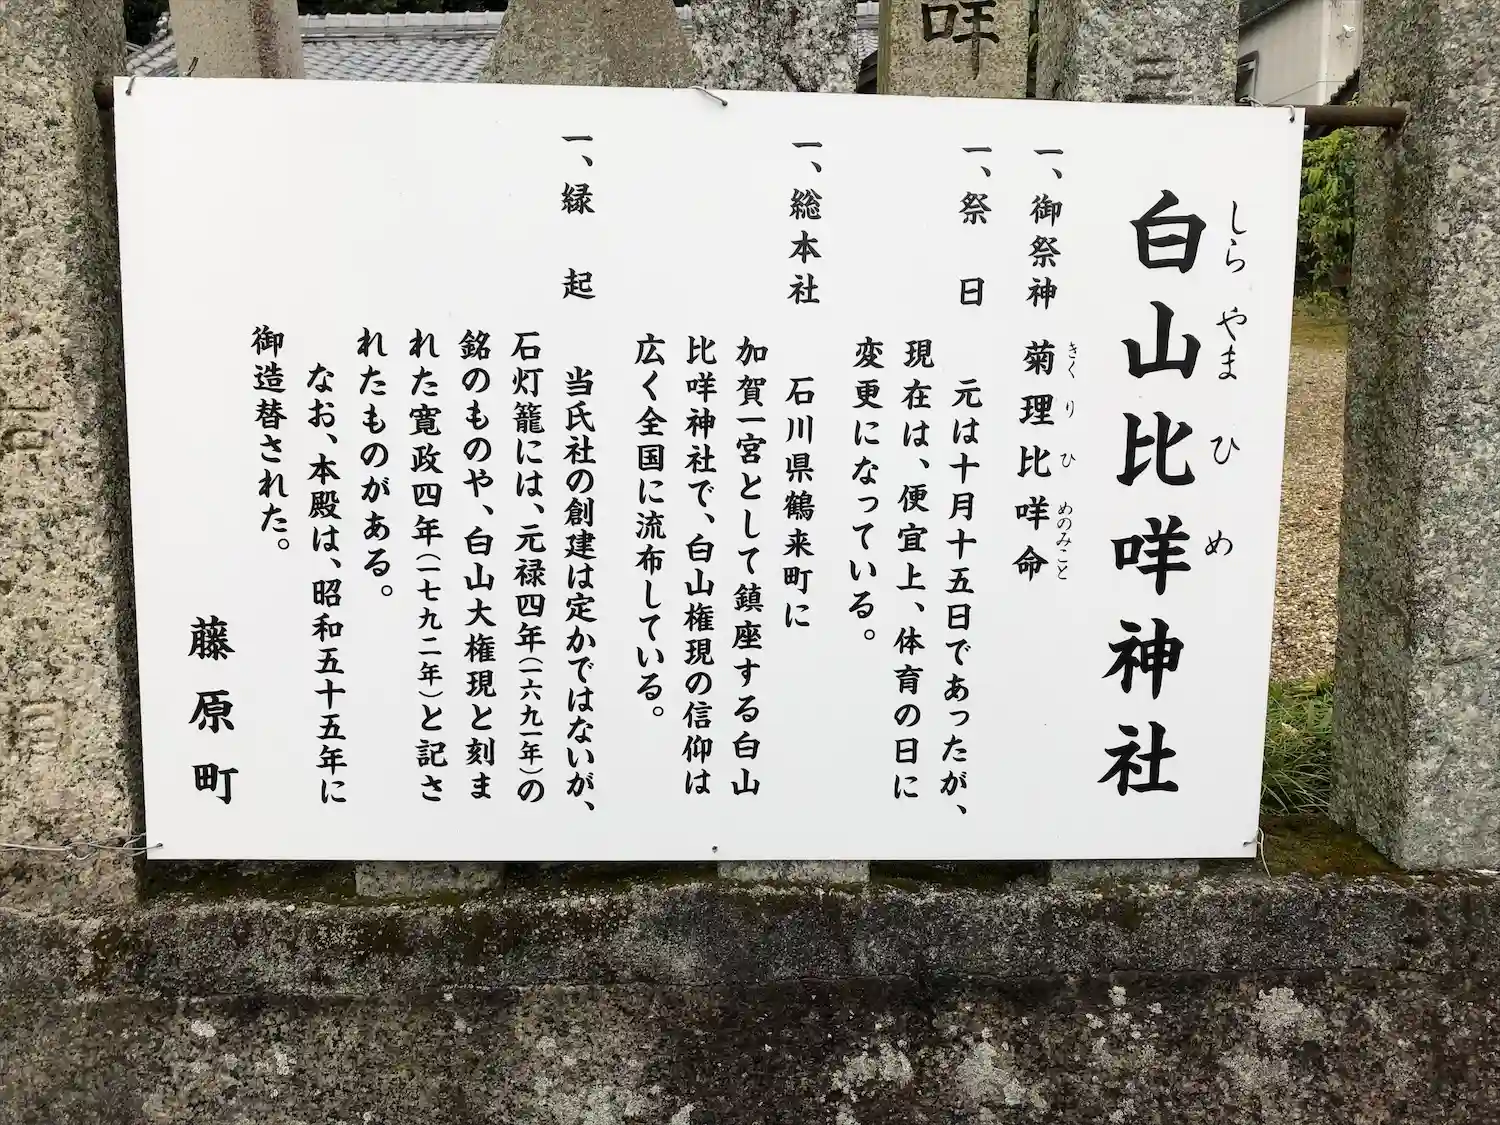 白山比咩神社
しらやまひめ
一、御祭神 菊理比咩命
きくりひめのみこと
一、祭 日 元は十月十五日であったが、
現在は、便宜上、体育の日に
変更になっている。
一、総本社 石川県鶴来町に
加賀一宮として鎮座する白山
比咩神社で、白山権現の信仰は
広く全国に流布している。
一、縁 起 当氏社の創建は定かではないが、
石灯籠には、元禄四年(一六九一年)の
銘のものや、白山大権現と刻ま
れた寛政四年(一七九二年)と記さ
れたものがある。
なお、本殿は、昭和五十五年に
御造替された。
藤原町
咩